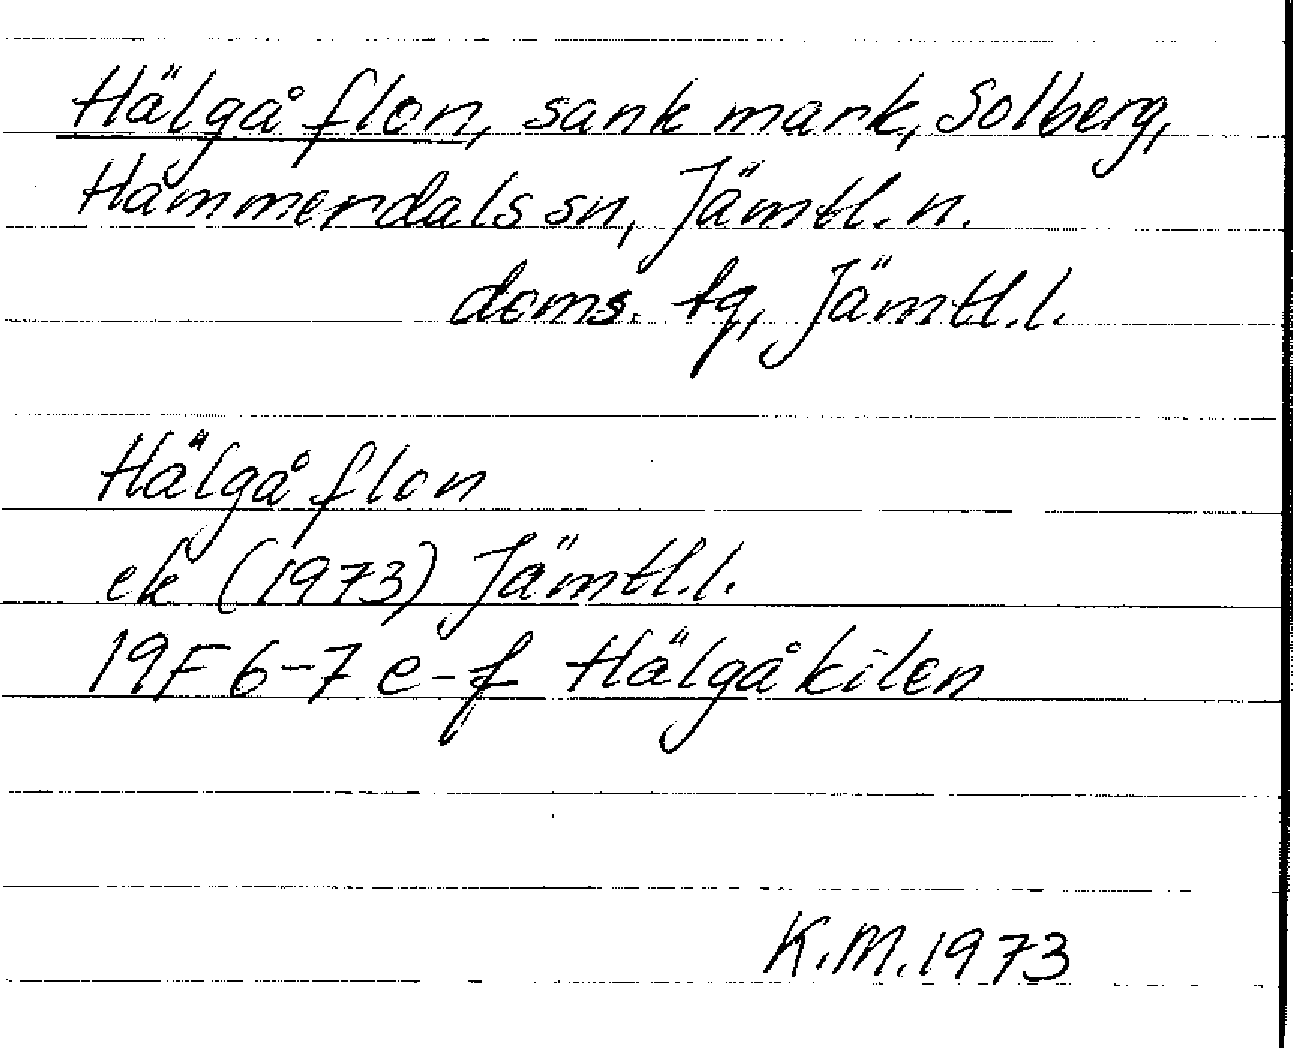 Hälgåflon, sank mark, Solberg,
Hammerdals sn, Jämtl. n.
doms. tg, Jämtl. l.
Hälgåflon
ek (1973) Jämtl. l.
19F 6-7 e-f Hälgåkilen
K.M. 1973